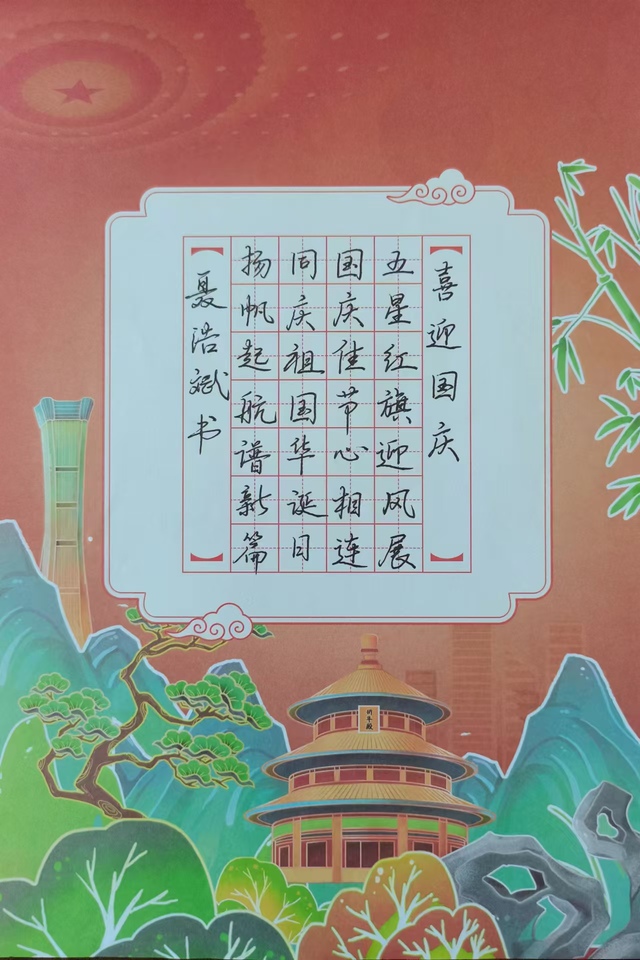 喜迎国庆
五星红旗迎风展
国庆佳节心相连
同庆祖国华诞日
扬帆起航谱新篇
聂浩斌书
祈年殿